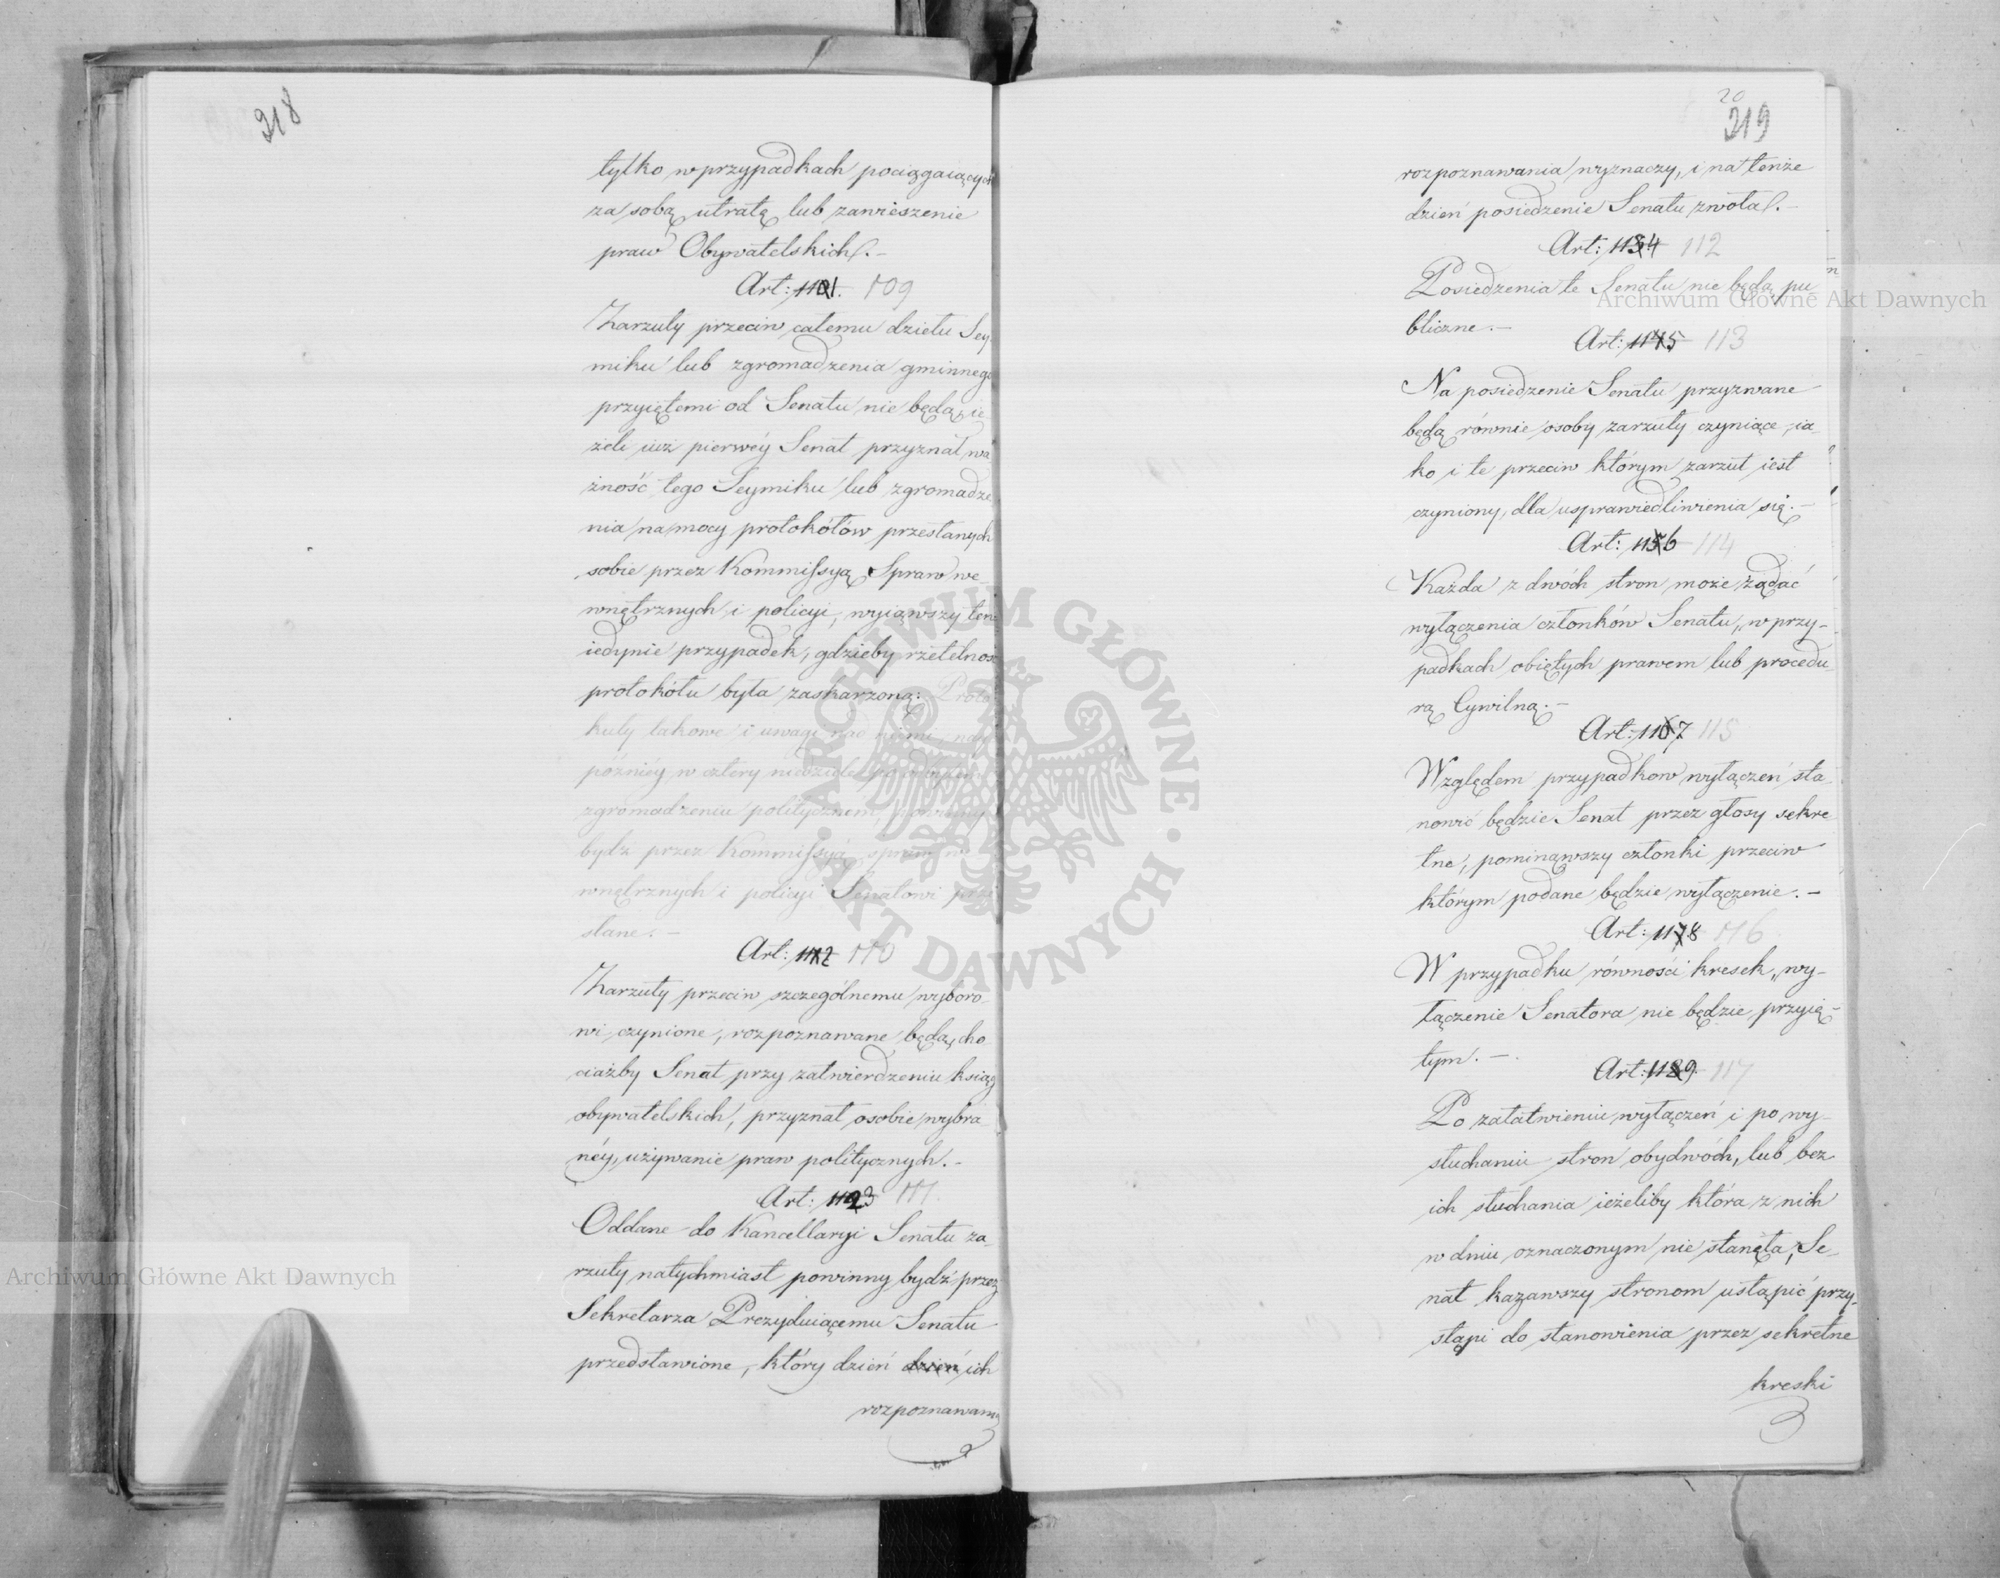 218
tylko w przypadkach pociągaiących
za sobą utratę lub zawieszenie
praw Obywatelskich.–
Art: 109
Zarzuty przeciw całemu dziełu Sey
miku lub zgromadzenia gminnego
przyiętemi od Senatu nie będą, ie
żeli iuż pierwéy Senat przyznał wa
żność tego Seymiku lub zgromadze
nia na mocy protokółów przesłanych
sobie przez Kommissyą Spraw we-
wnętrznych i policyi, wyiąwszy ten
iedynie przypadek, gdzieby rzetelnoś
protokółu była zaskarzoną: Proto
kuły takowe i uwagi nad niemi, nay
późniéy w cztery niedziele po
zgromadzeniu politycznem, powinny
bydź przez Kommissyą spraw we
wnętrznych i policyi Senatowi prze
słane.–
Art: 112 110
Zarzuty przeciw szczególnemu wyboro-
wi czynione, rozpoznawane będą, cho
ciażby Senat przy zatwierdzeniu ksiąg
obywatelskich, przyznał osobie wybra-
néy, używanie praw politycznych.–
Art: 1123 111.
Oddane do Kancellaryi Senatu za-
rzuty natychmiast powinny bydź przez
Sekretarza Prezyduiącemu Senatu
przedstawione, który dzień dzień ich
rozpoznawania
20
219
rozpoznawania wyznaczy, i na tenże
dzień posiedzenie Senatu zwoła.–
Art: 1134 112
Posiedzenia te Senatu nie będą pu
bliczne.–
Art: 1145 113
Na posiedzenie Senatu przyzwane
będą równie osoby zarzuty czyniące, ia-
ko i te przeciw którym zarzut iest
czyniony, dla usprawiedliwienia się.–
Art: 1156 114
Każda z dwóch stron może żądać
wyłączenia członków Senatu, w przy-
padkach obiętych prawem lub procedu
rą Cywilną.–
Art: 1167 115
Względem przypadkow wyłączeń sta-
nowić będzie Senat przez głosy sekre
tne, pominąwszy członki przeciw
którym podane będzie wyłączenie.–
Art: 1178 116
W przypadku równości kresek, wy-
łączenie Senatora nie będzie przyię-
tym.–
Art: 1189 117
Po załatwieniu wyłączeń i po wy-
słuchaniu stron obydwóch, lub bez
ich słuchania ieżeliby która z nich
w dniu oznaczonym nie stanęła, Se-
nat kazawszy stronom ustąpić przy-
stąpi do stanowienia przez sekretne
kreski
Archiwum Główne Akt Dawnych
Archiwum Główne Akt Dawnych
ARCHIWUM GŁÓWNE · AKT DAWNYCH ·